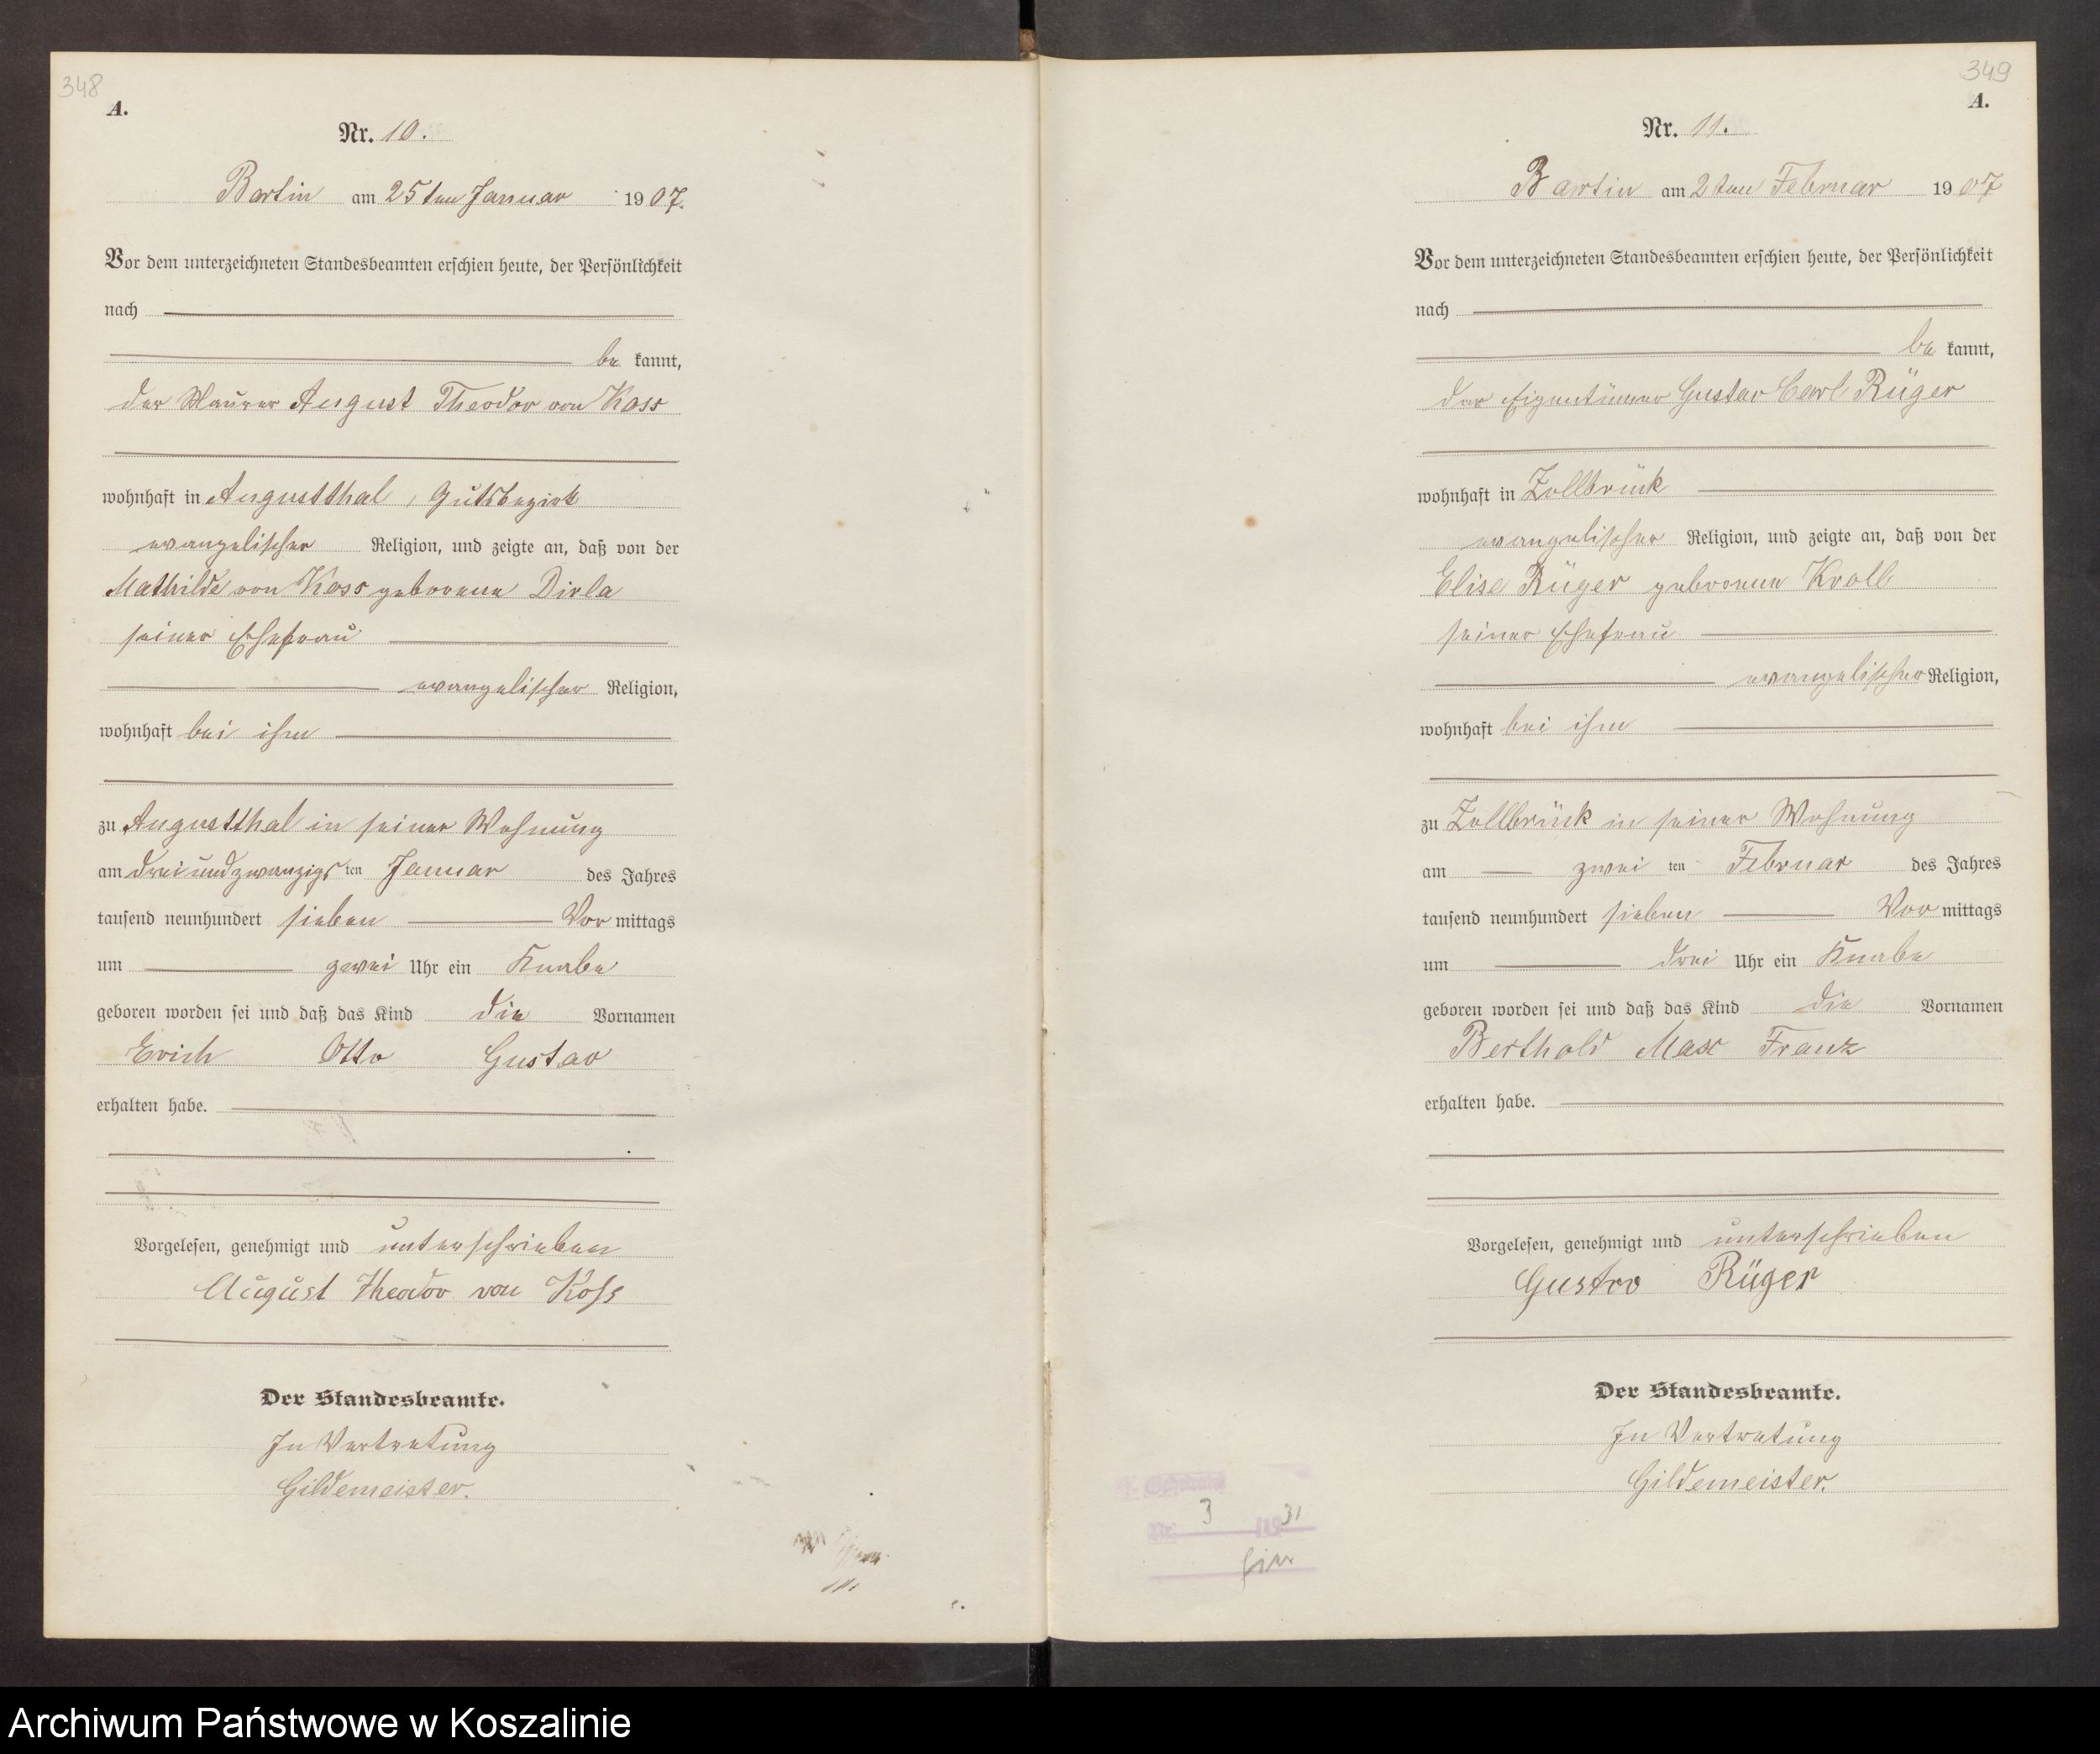 348
A.
Nr. 10.
Bartin am 25ten Januar 1907.
Vor dem unterzeichneten Standesbeamten erschien heute, der Persönlichkeit
nach
be kannt,
der Maurer August Theodor von Koss
wohnhaft in Augustthal, Gutsbezirk
evangelischer Religion, und zeigte an, daß von der
Mathilde von Koss geborene Dirla
seiner Ehefrau
evangelischer Religion,
wohnhaft bei ihm
zu Augustthal in seiner Wohnung
am dreiundzwanzigsten Januar des Jahres
tausend neunhundert sieben Vor mittags
um zwei Uhr ein Knabe
geboren worden sei und daß das Kind die Vornamen
Erich Otto Gustav
erhalten habe.
Vorgelesen, genehmigt und unterschrieben
August Theodor von Koß
Der Standesbeamte.
In Vertretung
Gildemeister.
349
A.
Nr. 11.
Bartin am 2ten Februar 1907
Vor dem unterzeichneten Standesbeamten erschien heute, der Persönlichkeit
nach
be kannt,
der Eigentümer Gustav Carl Rüger
wohnhaft in Zollbrück
evangelischer Religion, und zeigte an, daß von der
Elise Rüger geborene Kroll
seiner Ehefrau
evangelischer Religion,
wohnhaft bei ihm
zu Zollbrück in seiner Wohnung
am zwei ten Februar des Jahres
tausend neunhundert sieben Vor mittags
um drei Uhr ein Knabe
geboren worden sei und daß das Kind die Vornamen
Berthold Max Franz
erhalten habe.
Vorgelesen, genehmigt und unterschrieben
Gustav Rüger
Der Standesbeamte.
In Vertretung
Gildemeister.
Nr. 3 1931
Archiwum Państwowe w Koszalinie